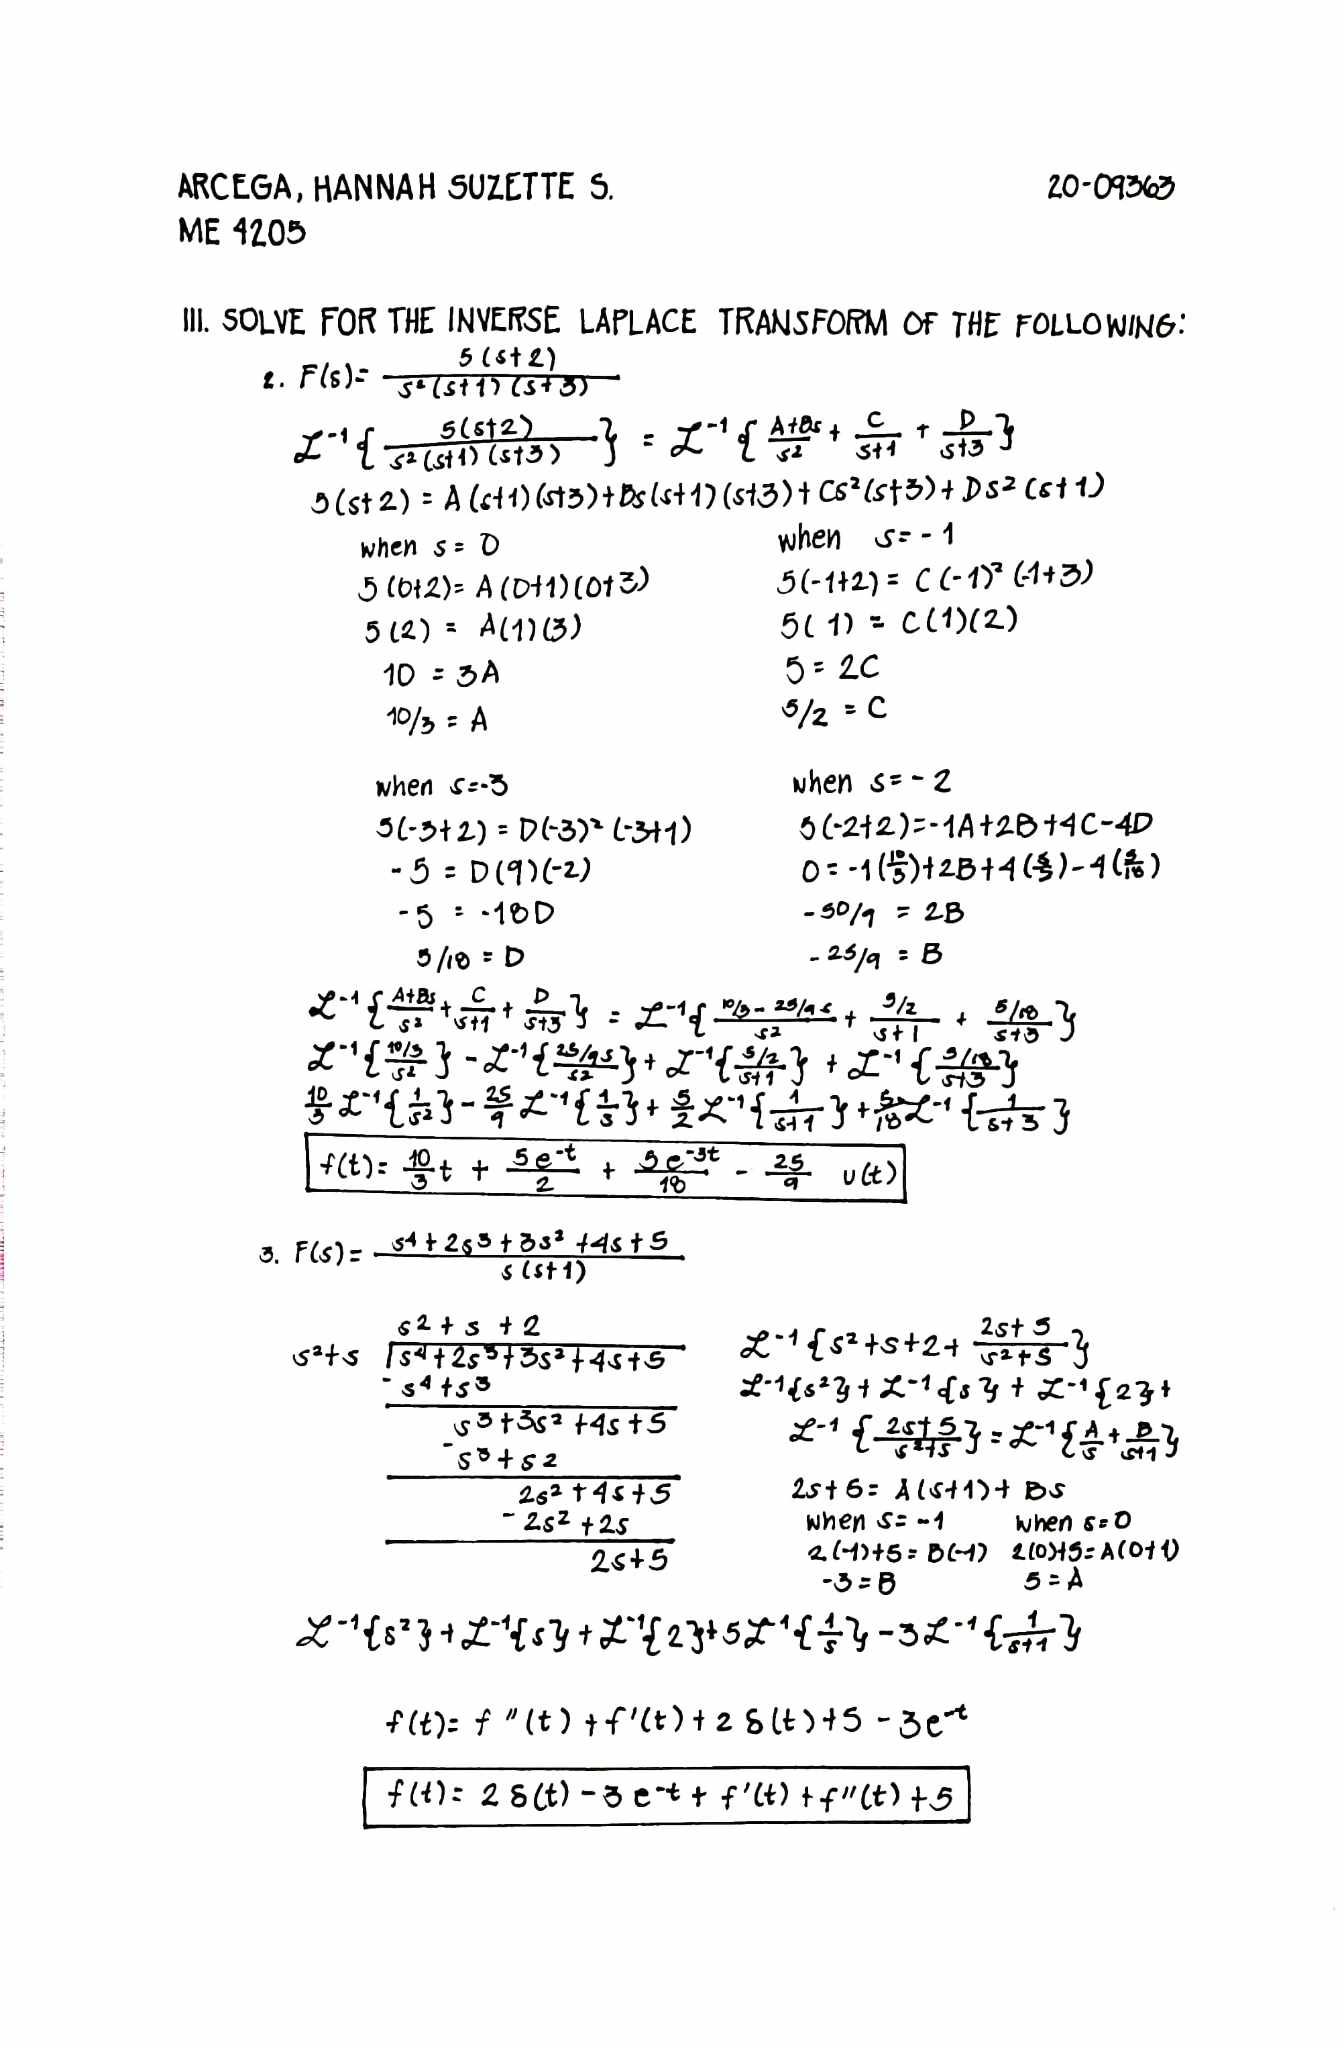 ARCEGA, HANNAH SUZETTE S. 20-09363
ME 4205
III. SOLVE FOR THE INVERSE LAPLACE TRANSFORM OF THE FOLLOWING:
2. F(s)= 5(s+2) / s²(s+1)(s+3)
ℒ⁻¹{ 5(s+2) / s²(s+1)(s+3) } = ℒ⁻¹{ A+Bs/s² + C/s+1 + D/s+3 }
5(s+2) = A(s+1)(s+3)+Bs(s+1)(s+3)+Cs²(s+3)+Ds²(s+1)
when s=0
5(0+2)= A(0+1)(0+3)
5(2) = A(1)(3)
10 = 3A
10/3 = A
when s=-1
5(-1+2)= C(-1)²(-1+3)
5(1) = C(1)(2)
5=2C
5/2 = C
when s=-3
5(-3+2)=D(-3)²(-3+1)
-5 = D(9)(-2)
-5 = -18D
5/18 = D
when s=-2
5(-2+2)=-1A+2B+4C-4D
0=-1(10/3)+2B+4(5/2)-4(5/18)
-50/9 = 2B
-25/9 = B
ℒ⁻¹{A+Bs/s² + C/s+1 + D/s+3} = ℒ⁻¹{ 10/3 - 25/9 s/s² + 5/2/s+1 + 5/18/s+3 }
ℒ⁻¹{10/3/s²} - ℒ⁻¹{25/9s/s²} + ℒ⁻¹{5/2/s+1} + ℒ⁻¹{5/18/s+3}
10/3 ℒ⁻¹{1/s²} - 25/9 ℒ⁻¹{1/s} + 5/2 ℒ⁻¹{1/s+1} + 5/18 ℒ⁻¹{1/s+3}
f(t)= 10/3 t + 5e⁻ᵗ/2 + 5e⁻³ᵗ/18 - 25/9 u(t)
3. F(s)= s⁴+2s³+3s²+4s+5 / s(s+1)
s²+s+2
s²+s √s⁴+2s³+3s²+4s+5
- s⁴+s³
s³+3s²+4s+5
- s³+s²
2s²+4s+5
- 2s²+2s
2s+5
ℒ⁻¹{s²+s+2+ 2s+5/s²+s}
ℒ⁻¹{s²}+ℒ⁻¹{s}+ℒ⁻¹{2}+
ℒ⁻¹{2s+5/s²+s}=ℒ⁻¹{A/s + B/s+1}
2s+5= A(s+1)+Bs
when s=-1 when s=0
2(-1)+5=B(-1) 2(0)+5=A(0+1)
-3=B 5=A
ℒ⁻¹{s²}+ℒ⁻¹{s}+ℒ⁻¹{2}+5ℒ⁻¹{1/s}-3ℒ⁻¹{1/s+1}
f(t)= f"(t)+f'(t)+2δ(t)+5-3e⁻ᵗ
f(t)= 2δ(t)-3e⁻ᵗ+f'(t)+f"(t)+5